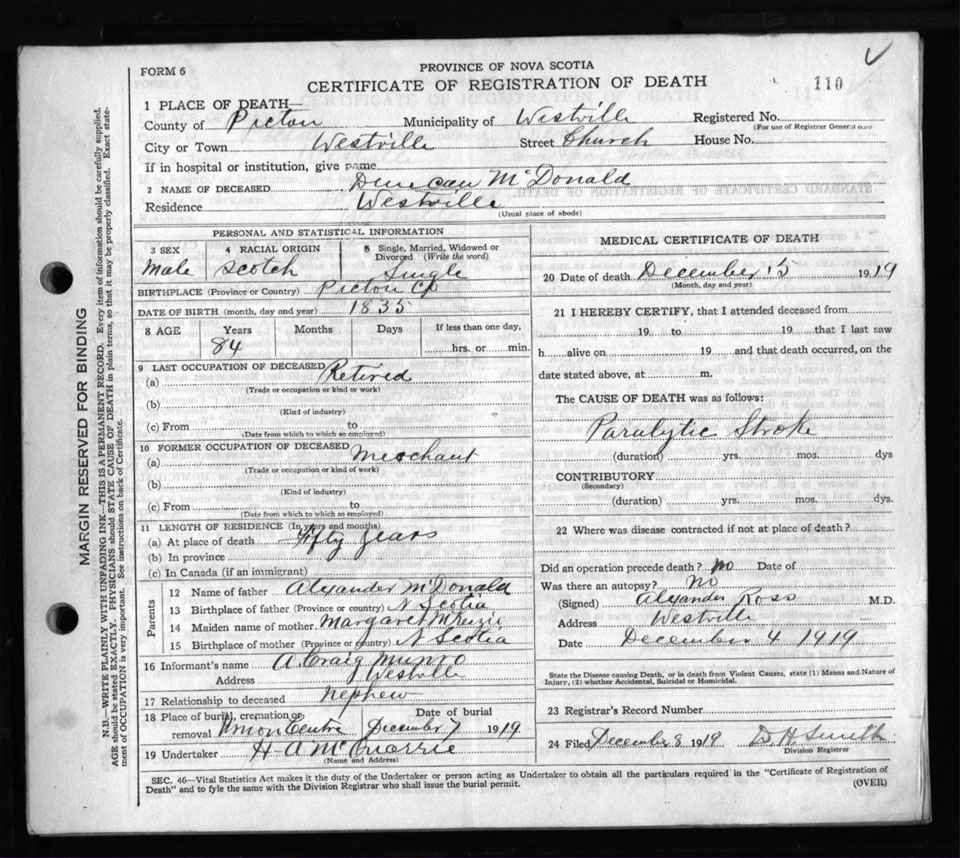 FORM 6
PROVINCE OF NOVA SCOTIA
CERTIFICATE OF REGISTRATION OF DEATH
110
1 PLACE OF DEATH—
County of Pictou Municipality of Westville Registered No.
(For use of Registrar General only)
City or Town Westville Street Church House No.
If in hospital or institution, give name
2 NAME OF DECEASED Duncan McDonald
Residence Westville
(Usual place of abode)
PERSONAL AND STATISTICAL INFORMATION
3 SEX 4 RACIAL ORIGIN 5 Single, Married, Widowed or Divorced (Write the word)
Male Scotch Single
BIRTHPLACE (Province or Country) Pictou Co
DATE OF BIRTH (month, day and year) 1835
8 AGE Years Months Days If less than one day,
84 hrs. or min.
9 LAST OCCUPATION OF DECEASED Retired
(a)
(Trade or occupation or kind or work)
(b)
(Kind of industry)
(c) From to
(Date from which to which so employed)
10 FORMER OCCUPATION OF DECEASED Merchant
(a)
(Trade or occupation or kind of work)
(b)
(Kind of industry)
(c) From to
(Date from which to which so employed)
11 LENGTH OF RESIDENCE (In years and months)
(a) At place of death Fifty Years
(b) In province
(c) In Canada (if an immigrant)
Parents
12 Name of father Alexander McDonald
13 Birthplace of father (Province or country) N Scotia
14 Maiden name of mother Margaret
15 Birthplace of mother (Province or country) N Scotia
16 Informant's name A. Craig Munro
Address Westville
17 Relationship to deceased nephew
18 Place of burial, cremation or removal Union Centre Date of burial December 7 1919
19 Undertaker H A McQuarrie
(Name and Address)
MEDICAL CERTIFICATE OF DEATH
20 Date of death December 1919
(Month, day and year)
21 I HEREBY CERTIFY, that I attended deceased from
19 to 19 that I last saw
h alive on 19 and that death occurred, on the
date stated above, at m.
The CAUSE OF DEATH was as follows:
Paralytic Stroke
(duration) yrs. mos. dys
CONTRIBUTORY
(Secondary)
(duration) yrs. mos. dys.
22 Where was disease contracted if not at place of death?
Did an operation precede death? No Date of
Was there an autopsy? No
(Signed) Alexander Ross M.D.
Address Westville
Date December 4 1919
State the Disease causing Death, or in death from Violent Causes, state (1) Means and Nature of
Injury, (2) whether Accidental, Suicidal or Homicidal.
23 Registrar's Record Number
24 Filed December 8 1919 D. H. Smith
Division Registrar
SEC. 46—Vital Statistics Act makes it the duty of the Undertaker or person acting as Undertaker to obtain all the particulars required in the "Certificate of Registration of
Death" and to fyle the same with the Division Registrar who shall issue the burial permit.
(OVER)
MARGIN RESERVED FOR BINDING
N.B.—WRITE PLAINLY WITH UNFADING INK—THIS IS A PERMANENT RECORD. Every item of information should be carefully supplied.
AGE should be stated EXACTLY. PHYSICIANS should STATE CAUSE OF DEATH in plain terms, so that it may be properly classified. Exact state-
ment of OCCUPATION is very important. See instructions on back of Certificate.